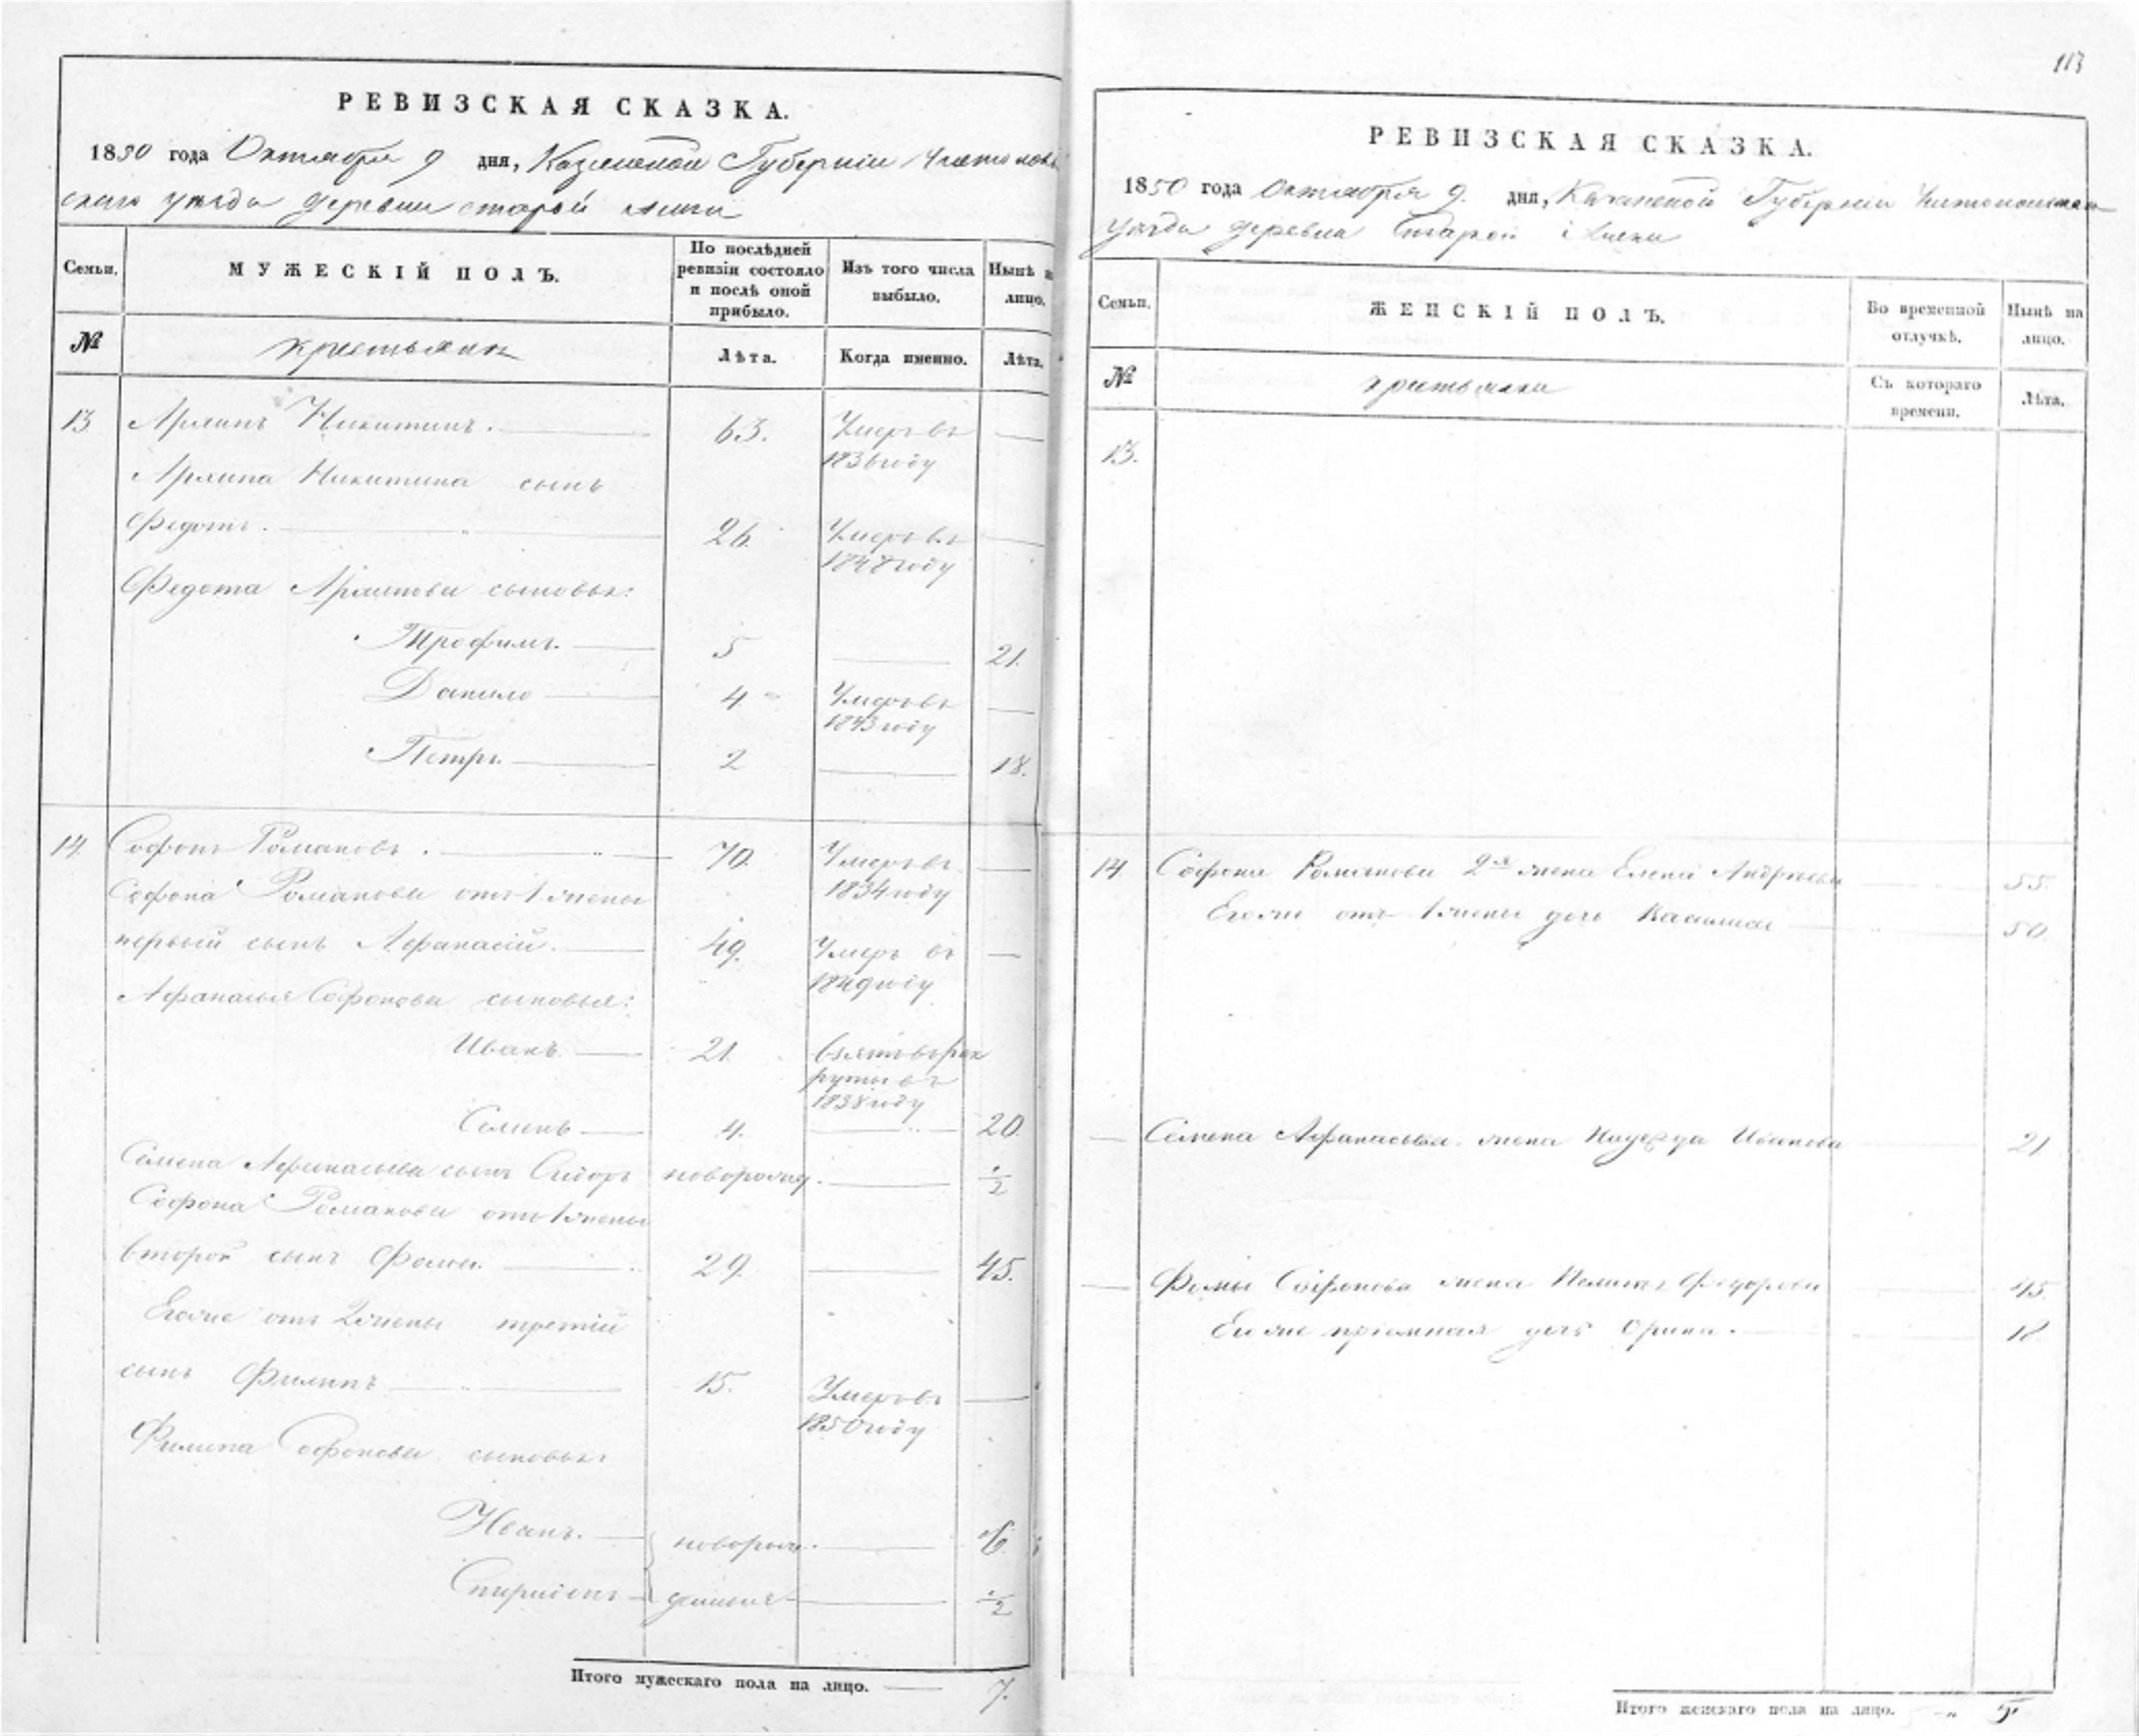 РЕВИЗСКАЯ СКАЗКА.
1850 года Октября 9 дня, Казанской Губернiи Чистополь
скаго уѣзда деревни старой
Семьи.
МУЖЕСКIЙ ПОЛЪ.
По послѣдней ревизiи состояло и послѣ оной прибыло.
Изъ того числа выбыло.
Нынѣ на лицо.
№
крестьяне
Лѣта.
Когда именно.
Лѣта.
13 Никитинъ. 63. Умеръ въ
1836 году
Никитина сынъ
Федотъ. 26. Умеръ въ
1848 году
Федота сыновья:
Трофимъ. 5 21.
Данило 4 Умеръ въ
1843 году
Петръ. 2 18.
14. Софонъ Романовъ. 70. Умеръ въ
1834 году
Софона Романова отъ 1 жены
первый сынъ Афанасiй. 49. Умеръ въ
1849 году
Афанасья Софонова сыновья:
Иванъ. 21. взятъ въ рек
руты въ
1838 году
Семенъ 4. 20.
Семена Афанасьева сынъ Сидоръ новорожд. 1/2
Софона Романова отъ 1 жены
второй сынъ Фома. 29. 45.
Егоже отъ 2 жены третiй
сынъ Филипъ 15. Умеръ въ
1850 году
Филипа Софонова сыновья:
Иванъ. новорож 6.
Спиридонъ денные 1/2
Итого мужескаго пола на лицо. 7.
113
РЕВИЗСКАЯ СКАЗКА.
1850 года Октября 9. дня, Казанской Губернiи Чистопольскаго
уѣзда деревни Старой
Семьи.
ЖЕНСКIЙ ПОЛЪ.
Во временной отлучкѣ.
Нынѣ на лицо.
№
крестьянки
Съ котораго времени.
Лѣта.
13.
14 Софона Романова 2я жена Елена Андреева 55.
Егоже отъ 1 жены дочь Василиса 50.
Семена Афанасьева жена Иванова 21
Фомы Софонова жена Федорова 45.
Ихъ же прiемная дочь Орина. 18
Итого женскаго пола на лицо. 5